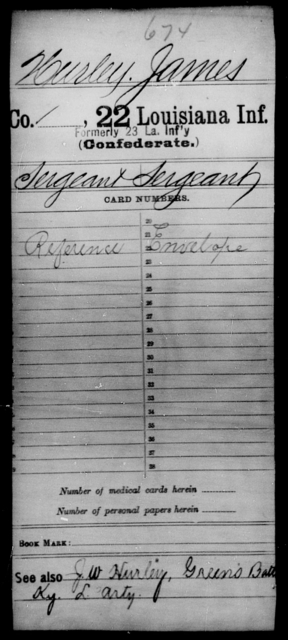 674
Hurley, James
Co. 1, 22 Louisiana Inf.
Formerly 23 La. Inf'y
(Confederate.)
Sergeant Sergeant
CARD NUMBERS.
20
21
Reference Envelope
23
24
25
26
27
28
29
30
31
32
33
34
35
36
37
38
Number of medical cards herein
Number of personal papers herein
BOOK MARK:
See also J W Hurley, Green's Batt
Ky. L. Arty.